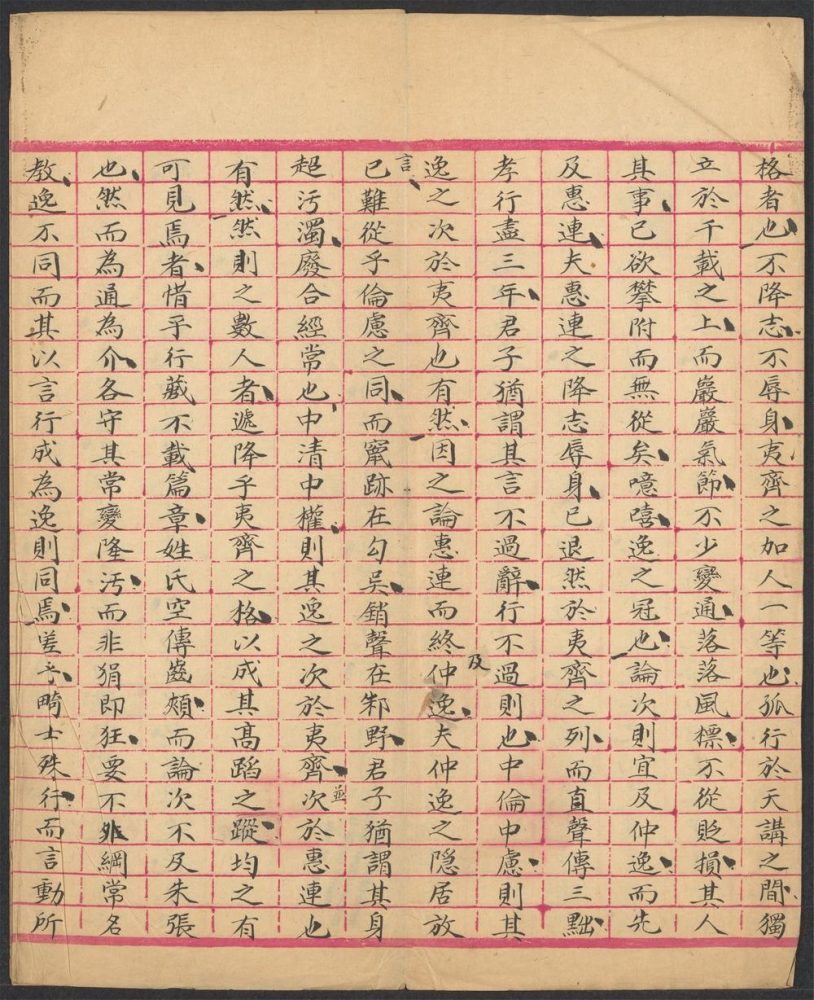 格者也不降志不辱身夷齊之加人一等也孤行於天講之間獨
立於千載之上而巖巖氣節不少變通落落風標不從貶損其人
其事已欲攀附而無從矣噫嘻逸之冠也論次則宜及仲逸而先
及惠連夫惠連之降志辱身已退然於夷齊之列而直聲傳三黜
孝行盡三年君子猶謂其言不過辭行不過則也中倫中慮則其
逸之次於夷齊也有然因之論惠連而終及仲逸夫仲逸之隱居放
言已難從乎倫慮之同而竄跡在勾吳銷聲在邾野君子猶謂其身
超污濁廢合經常也中清中權則其逸之次於夷齊並次於惠連也
有然然則之數人者遞降乎夷齊之格以成其高蹈之蹤均之有
可見焉者惜乎行藏不載篇章姓氏空傳齒頰而論次不及朱張
也然而為通為介各守其常變隆污而非狷即狂要不外綱常名
教逸不同而其以言行成為逸則同焉嗟乎畸士殊行而言動所